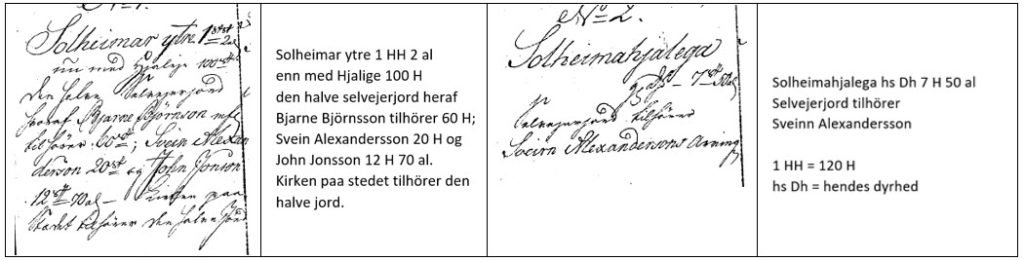 Solheimar ytre 1
nu med Hjalige 100
den halve Selvejerjord
heraf Bjarne Björnson
tilhörer 60; Svein Alexan
derson 20 og John Jonson
12 70 al Kirken paa
Stædet tilhörer den halve Jord
Solheimar ytre 1 HH 2 al
enn med Hjalige 100 H
den halve selvejerjord heraf
Bjarne Björnsson tilhörer 60 H;
Svein Alexandersson 20 H og
John Jonsson 12 H 70 al.
Kirken paa stedet tilhörer den
halve jord.
No 2.
Solheimahjalega
7 50 al
Selvejerjord tilhörer
Sveirn Alexandersons
Solheimahjalega hs Dh 7 H 50 al
Selvejerjord tilhörer
Sveinn Alexandersson
1 HH = 120 H
hs Dh = hendes dyrhed